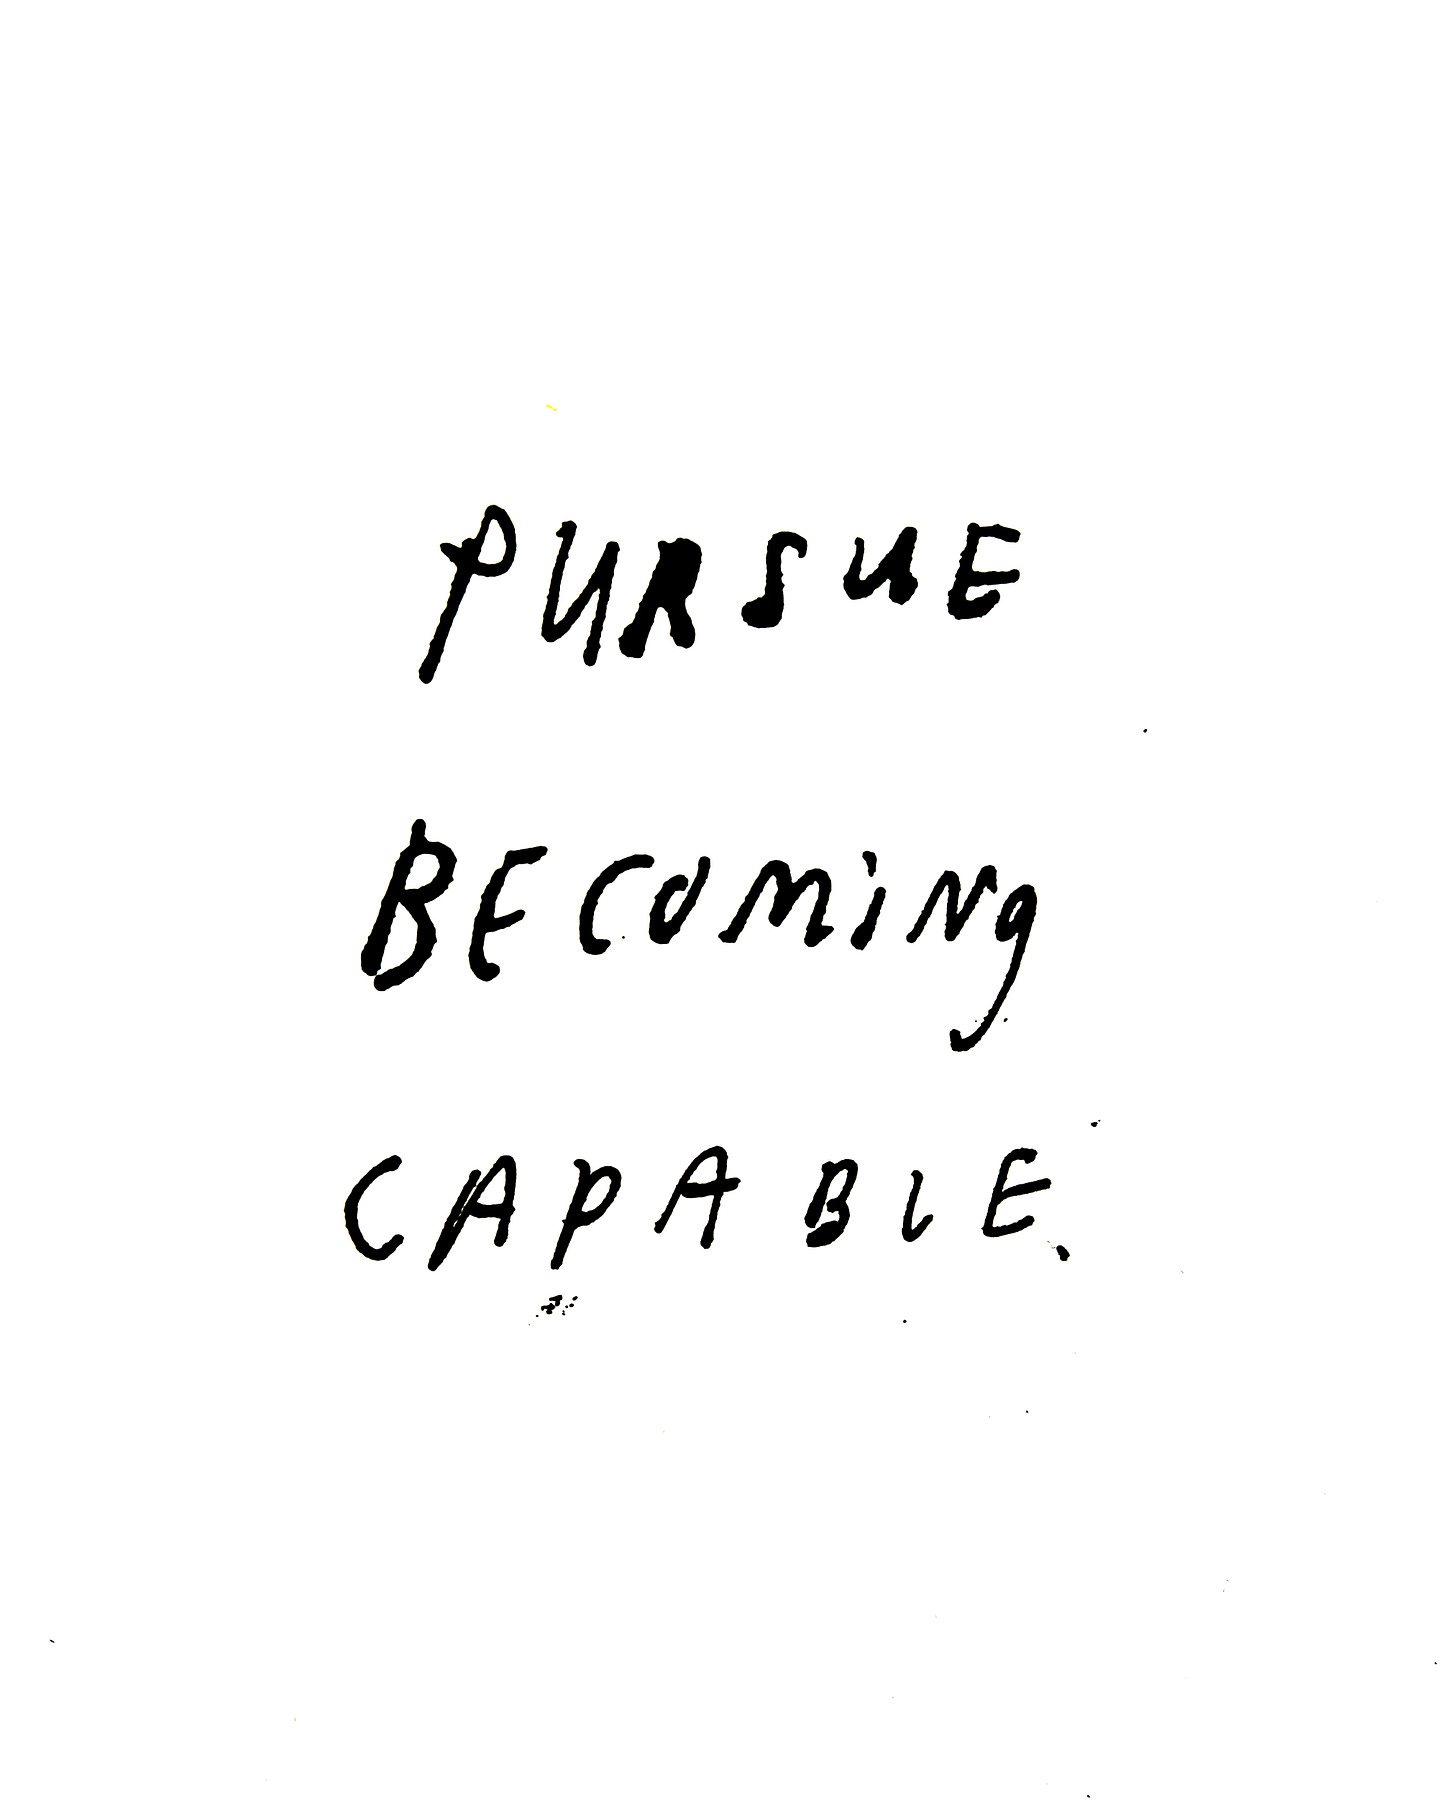 PURSUE
BECOMiNg
CAPABLE.